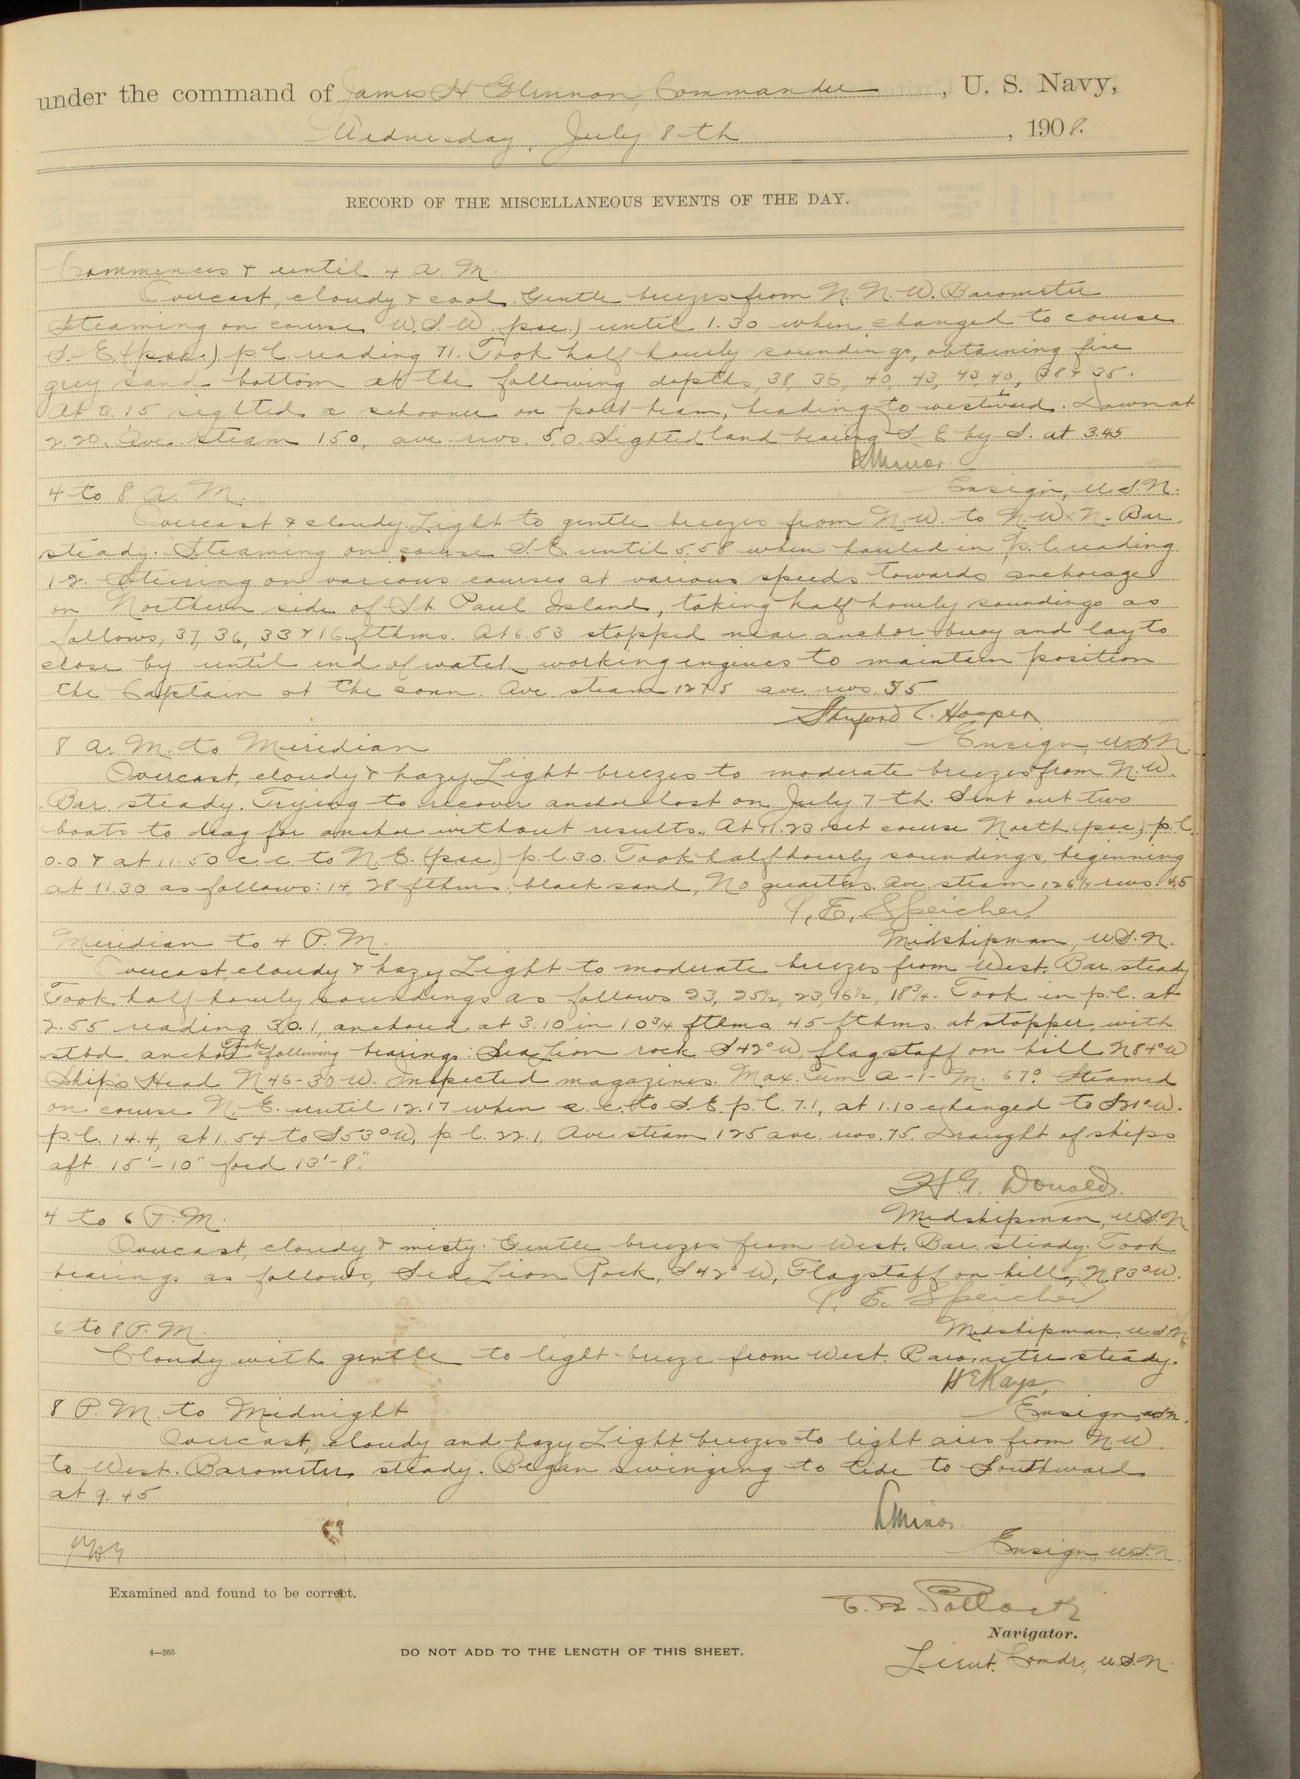 under the command of James H Glennon, Commander, U. S. Navy,
Wednesday, July 8th, 1908.
RECORD OF THE MISCELLANEOUS EVENTS OF THE DAY.
Commences & until 4 A. M.
Overcast, cloudy & cool. Gentle breezes from N. N. W. Barometer
Steaming on course W. S. W. psc.) until 1.30 when changed to course
S. E. (psc.) p. l. reading 71. Took half hourly soundings, obtaining fine
grey sand bottom at the following depths, 38, 36, 40, 43, 43, 40, 38 & 35.
At 3.15 sighted a schooner on port beam, heading to westward. Dawn at
2.20. Ave. steam 150, ave revs. 50. Sighted land bearing S. E by S. at 3.45
L Minor
4 to 8 A. M. Ensign, U.S.N.
Overcast & cloudy. Light to gentle breezes from N. W. to N. W x N. Bar
steady. Steaming on course S. E. until 5.58 when hauled in p. l. reading
1.2. Steering on various courses at various speeds towards anchorage
on Northern side of St Paul Island, taking half hourly soundings as
follows, 37, 36, 33 & 16 fthms. At 6.53 stopped near anchor buoy and lay to
close by until end of watch working engines to maintain position
the Captain at the conn. Ave. steam 127.5 ave. revs.
C. Hooper
8 A. M. to Meridian Ensign, U.S.N.
Overcast, cloudy & hazy. Light breezes to moderate breezes from N. W.
Bar steady. Trying to recover anchor lost on July 7 th. Sent out two
boats to drag for anchor without results. At 11.23 set course North (psc) p. l.
0.0 & at 11.50 c. c. to N. E. (psc) p l 30. Took half hourly soundings, beginning
at 11.30 as follows: 14, 28 fthms. black sand, No quarters. Ave steam 126½ revs. 45
E. Speicher
Meridian to 4 P. M. Midshipman, U.S.N.
Overcast, cloudy & hazy. Light to moderate breezes from West. Bar. steady
Took half hourly soundings as follows 23, 25½, 23, 16½, 18¾. Took in p. l. at
2.55 reading 30.1, anchored at 3.10 in 10¾ fthms 45 fthms. at stopper with
stbd. anchor. Took following bearings: Sea Lion rock S42°W flagstaff on hill N84°W
Ships Head N46-30 W. Inspected magazines. Max. Tem A-1-M. 67°. Steamed
on course N. E. until 12.17 when c. c. to S E p. l. 7.1, at 1.10 changed to S21°W.
p. l. 14.4, at 1.54 to S53°W, p. l. 22.1, Ave steam 125 ave. revs. 75. Draught of ships
aft 15'-10" ford 13'-8".
H. G. Donald.
4 to 6 P. M. Midshipman, U.S.N
Overcast, cloudy & misty. Gentle breezes from West. Bar. steady. Took
bearings as follows, Sea Lion Rock, S42°W, Flagstaff on hill, N83°W.
E. Speicher
6 to 8 P. M. Midshipman, U.S.N.
Cloudy with gentle to light breeze from West. Barometer steady.
H E Kays,
8 P. M. to Midnight Ensign, U.S.N.
Overcast, cloudy and hazy. Light breezes to light airs from N. W.
to West. Barometer steady. Began swinging to tide to Southward
at 9.45
L Minor.
Ensign, U.S.N.
Examined and found to be correct.
Pollock
Navigator.
4—265
DO NOT ADD TO THE LENGTH OF THIS SHEET.
Lieut. Comdr., U.S.N.